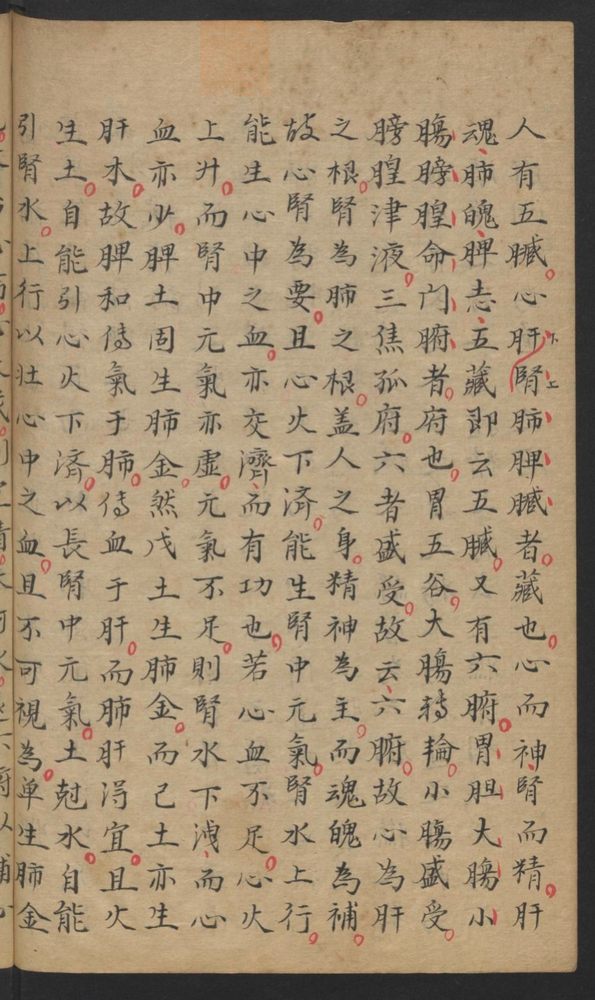 人有五臟心肝腎肺脾臟者藏也心而神腎而精肝
魂肺魄脾志五藏即云五臟又有六腑胃胆大腸小
腸膀胱命门腑者府也胃五谷大腸轉輪小腸盛受
膀胱津液三焦孤府六者盛受故云六腑故心為肝
之根腎為肺之根盖人之身精神為主而魂魄為補
故心腎為要且心火下济能生腎中元氣腎水上行
能生心中之血亦交濟而有功也若心血不足心火
上升而腎中元氣亦虚元氣不足則腎水下洩而心
血亦少脾土固生肺金然戊土生肺金而己土亦生
肝木故脾和傳氣于肺傳血于肝而肺肝淂宜且火
生土自能引心火下济以長腎中元氣土尅水自能
引腎水上行以壮心中之血且不可視為单生肺金